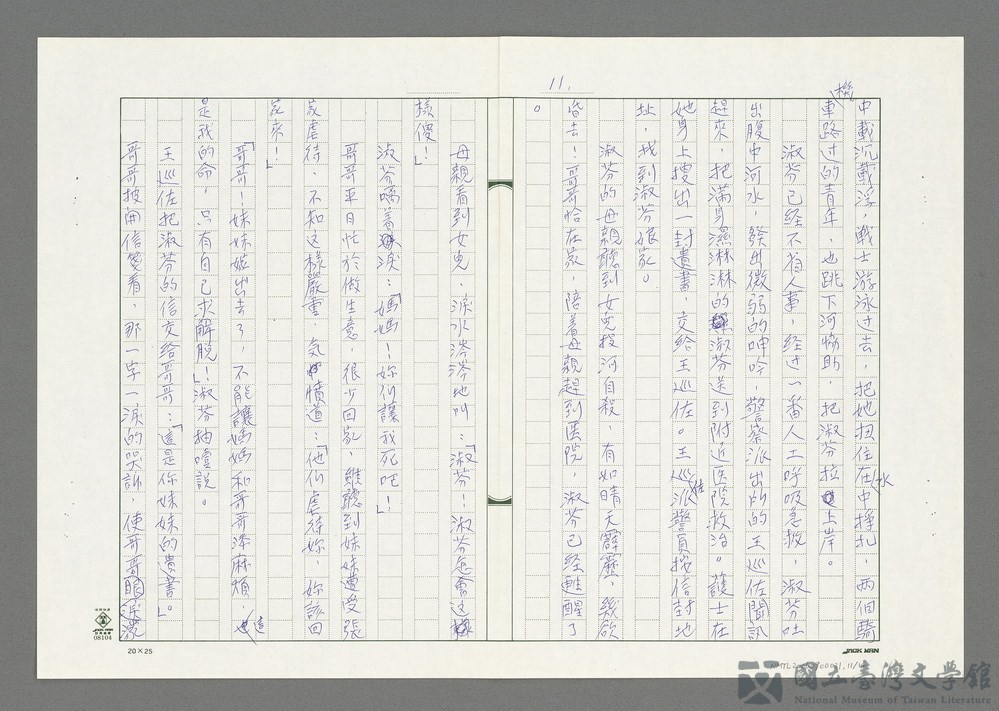 11.
中載沉載浮，戰士游泳過去，把她扭住在水中掙扎，兩個騎
機車路過的青年，也跳下河協助，把淑芬拉上岸。
淑芬已經不省人事，經过一番人工呼吸急救，淑芬吐
出腹中河水，發出微弱的呻吟，警察派出所的王巡佐聞訊
趕來，把滿身濕淋淋的淑芬送到附近医院救治。護士在
她身上搜出一封遺書，交給王巡佐。王巡佐派警員按信封地
址，找到淑芬娘家。
淑芬的母親聽到女兒投河自殺，有如晴天霹靂，幾欲
昏去！哥哥恰在家，陪着母親趕到医院，淑芬已經甦醒了
。
母親看到女兒，淚水涔涔地叫：「淑芬！淑芬怎會这
樣傻！」
淑芬噙着淚：「媽媽！妳们讓我死吧！」
哥哥平日忙於做生意，很少回家，雖聽到妹妹遭受張
家虐待，不知这樣嚴重，气憤道：「他们虐待妳，妳該回
家來！」
「哥哥！妹妹嫁出去了，不能讓媽媽和哥哥添麻煩，這也
是我的命，只有自己求解脫！」淑芬抽噎說。
王巡佐把淑芬的信交給哥哥：「這是你妹妹的遺書。」
哥哥披閱信箋看，那一字一淚的哭訴，使哥哥眼淚滾
20×25
08104
JACK MAN
國立臺灣文學館
National Museum of Taiwan Literature